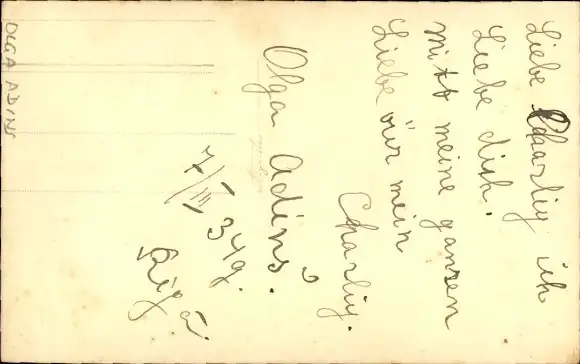 Liebe Charliy ich
Liebe dich.
mitt meine ganzen
Liebe für mein
Charliy.
Olga Adins.
7/III 34g.
Rīgā.
OLGA ADINS